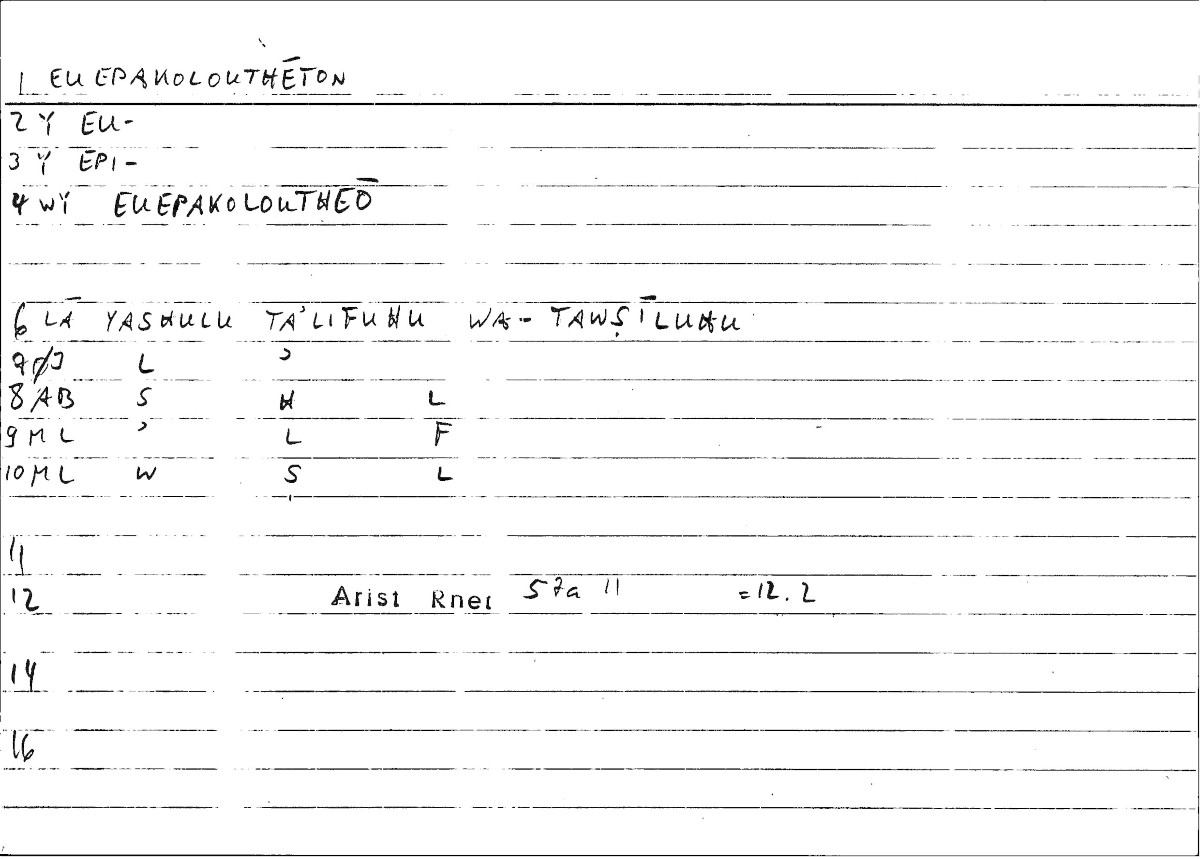 1 EUEPAKOLOUTHĒTON
2 Y EU-
3 Y EPI-
4 WY EUEPAKOLOUTHEŌ
6 LĀ YASHULU TA'LIFUHU WA- TAWṢĪLUHU
L ʾ
8 AB S H L
9 ML ʾ L F
10 ML W Ṣ L
11
12 Arist Rhet 57a 11 =12.2
14
16